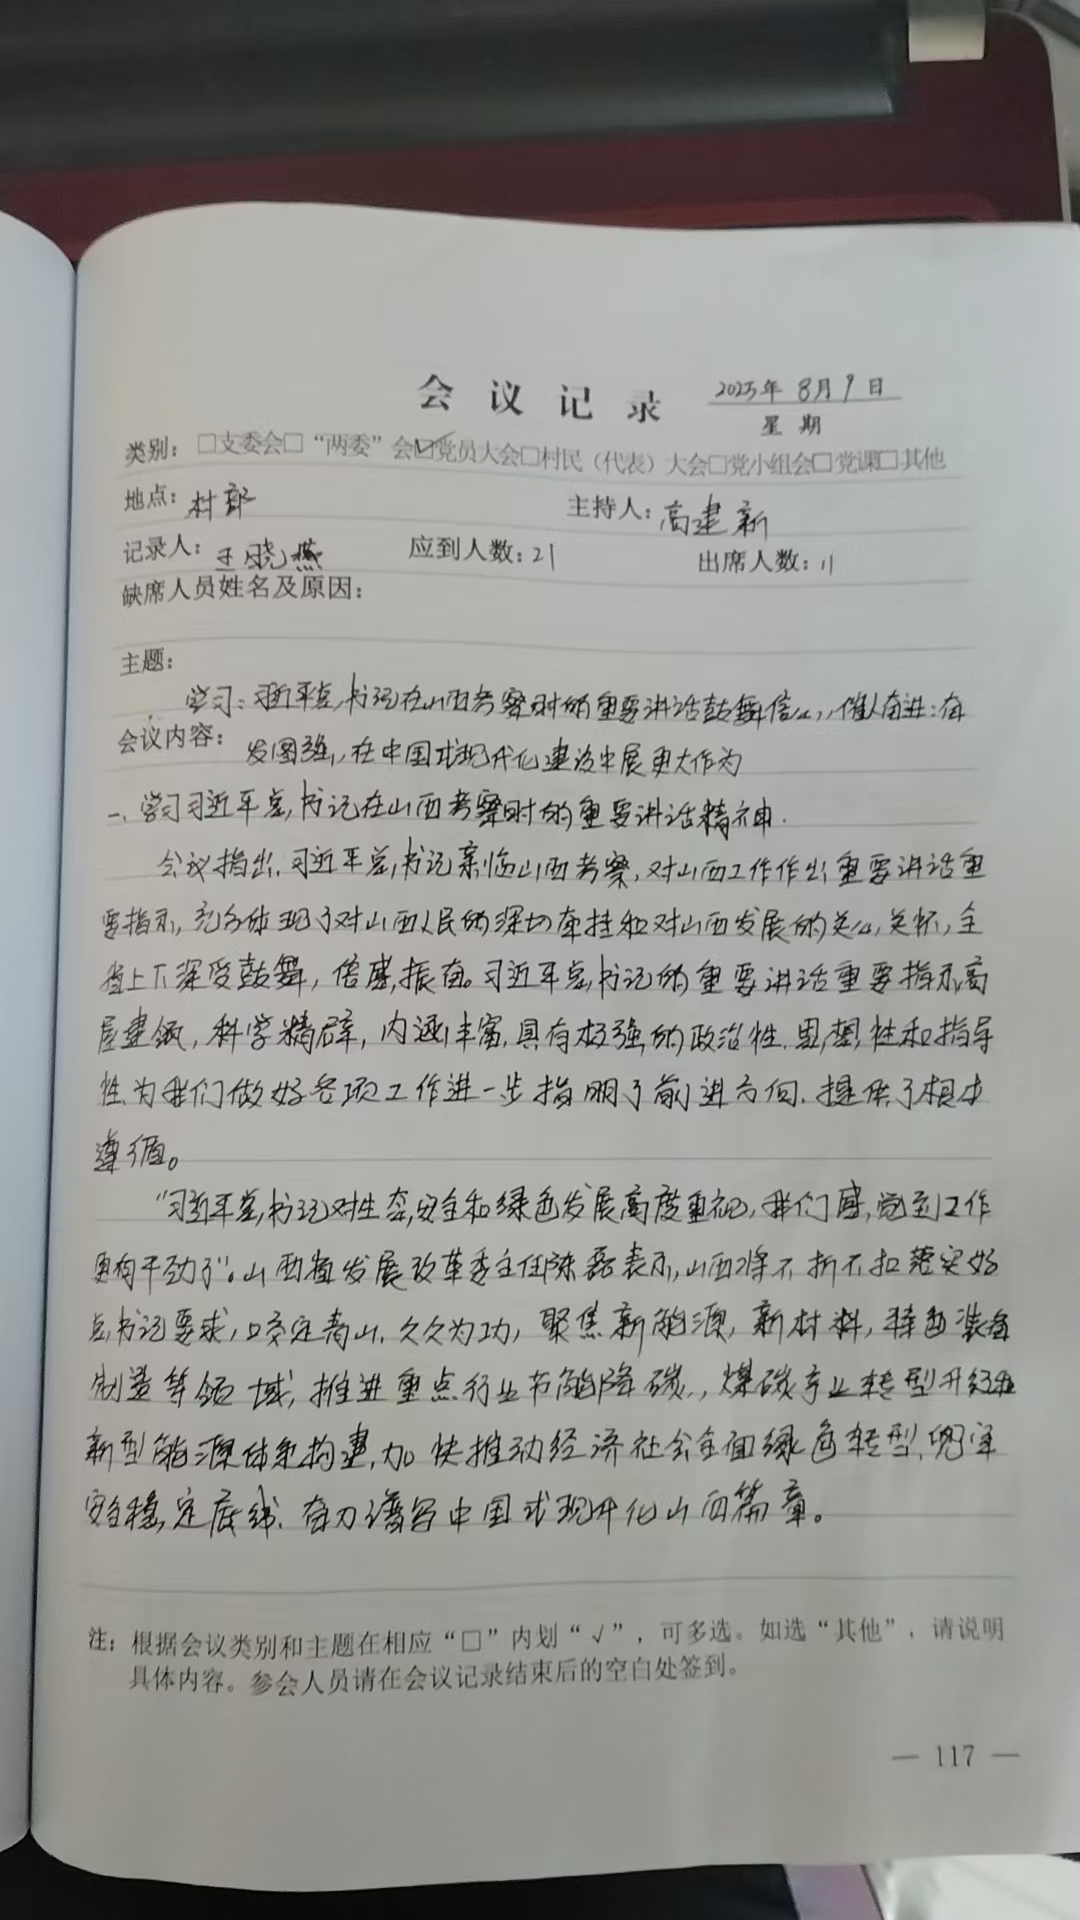 会议记录 2025年8月9日
星期
类别：□支委会□“两委”会☑党员大会□村民（代表）大会□党小组会□党课□其他
地点：村部 主持人：高建新
记录人：王晓燕 应到人数：21 出席人数：11
缺席人员姓名及原因：
主题：
学习：习近平总书记在山西考察时的重要讲话鼓舞信心，催人奋进：奋
会议内容：发图强，在中国式现代化建设中展更大作为
一、学习习近平总书记在山西考察时的重要讲话精神．
会议指出，习近平总书记亲临山西考察，对山西工作作出重要讲话重
要指示，充分体现了对山西人民的深切牵挂和对山西发展的关心关怀，全
省上下深受鼓舞，倍感振奋。习近平总书记的重要讲话重要指示高
屋建瓴，科学精辟，内涵丰富，具有极强的政治性、思想性和指导
性，为我们做好各项工作进一步指明了前进方向，提供了根本
遵循。
“习近平总书记对生态，安全和绿色发展高度重视，我们感觉到工作
更有干劲了”。山西省发展改革委主任陈磊表示，山西将不折不扣落实好
总书记要求，咬定青山，久久为功，聚焦新能源，新材料，特色装备
制造等领域，推进重点行业节能降碳，煤碳产业转型升级和
新型能源体系构建，加快推动经济社会全面绿色转型，兜牢
安全稳定底线，奋力谱写中国式现代化山西篇章。
注：根据会议类别和主题在相应“□”内划“√”，可多选。如选“其他”，请说明
具体内容。参会人员请在会议记录结束后的空白处签到。
— 117 —